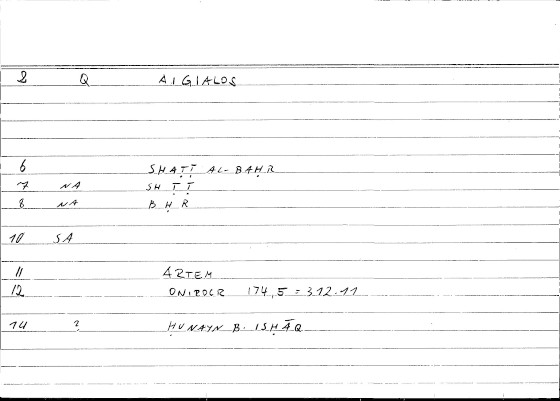 2 Q AIGIALOS
6 SHAṬṬ AL-BAḤR
7 NA SH Ṭ Ṭ
8 NA B Ḥ R
10 SA
11 ARTEM
12 ONIROCR 174,5 = 312.11
14 ? ḤUNAYN B. ISḤĀQ